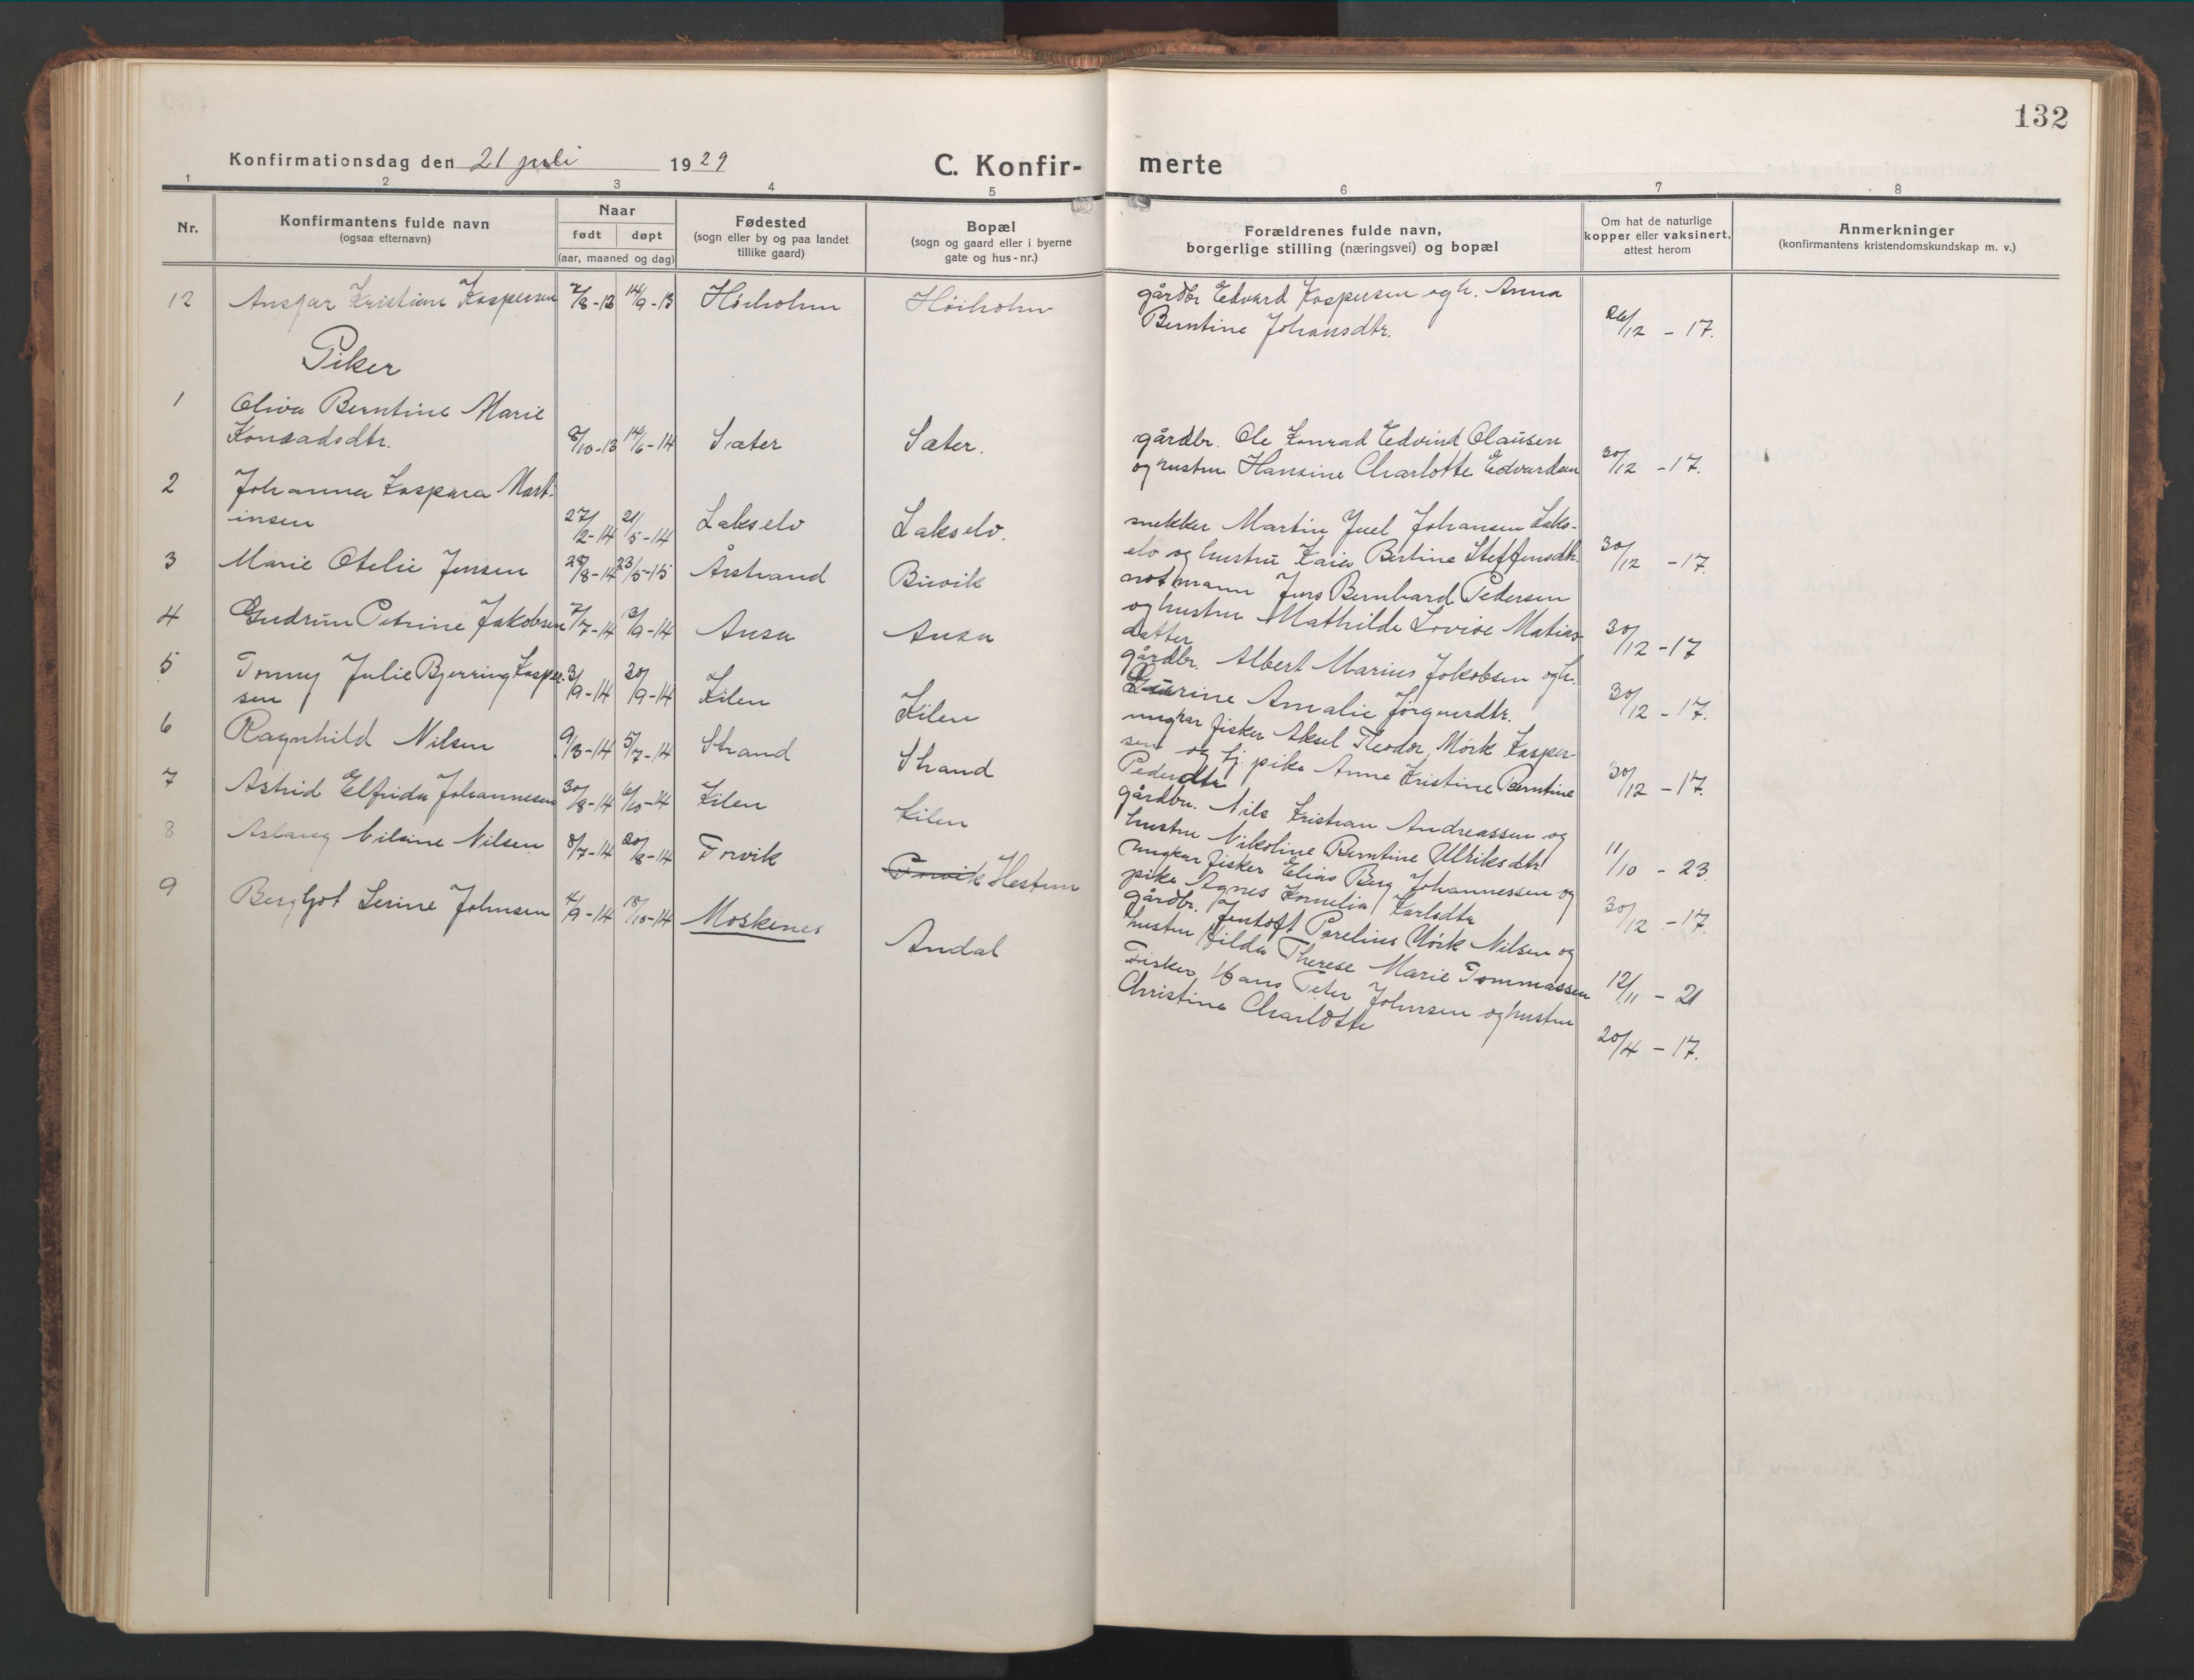 132
Konfirmationsdag den 21 juli 1929
C. Konfir-
merte
1 2 3 4 5 6 7 8
Nr.
Konfirmantens fulde navn
(ogsaa efternavn)
Naar
født døpt
(aar, maaned og dag)
Fødested
(sogn eller by og paa landet
tillike gaard)
Bopæl
(sogn og gaard eller i byerne
gate og hus-nr.)
Forældrenes fulde navn,
borgerlige stilling (næringsvei) og bopæl
Om hat de naturlige
kopper eller vaksinert,
attest herom
Anmerkninger
(konfirmantens kristendomskundskap m. v.)
12 Ansgar Kristian Kaspersen 7/8-13 14/9-13 Høiholm Høiholm
gårdbr Edvard Kaspersen og h. Anna
Berntine Johansdtr. 26/12 - 17.
Piker
1 Oliva Berntine Marie
Konradsdtr. 8/10-13 14/6-14 Sæter Sæter.
gårdbr. Ole Konrad Edvind Olausen
og hustru Hansine Charlotte Edvardsen 30/12 - 17.
2 Johanna Kaspara Mart-
insen 27/2-14 21/5-14 Lakselv Lakselv.
snekker Martin Juel Johansen Laks-
elv og hustru Kaia Bertine Steffensdtr. 30/12 - 17.
3 Marie Otelie Jensen 28/8-14 23/5-15 Årstrand Buvik
notmann Jens Bernhard Pedersen
og hustru Mathilde Lovise Matias-
datter 30/12 - 17
4 Gudrun Petrine Jakobsen 7/7-14 13/9-14 Ausa Ausa
gårdbr. Albert Marius Jakobsen og h.
Laurine Amalie Jørgensdtr. 30/12 - 17.
5 Tonny Julie Bjerring Kasper-
sen 3/9-14 20/9-14 Kilen Kilen
ungkar fisker Aksel Theodor Mørk Kasper-
sen og tj. pike Anna Kristine Berntine
Pedersdtr 30/12 - 17.
6 Ragnhild Nilsen 9/3-14 5/7-14 Strand Strand
gårdbr. Nils Kristian Andreassen og
hustru Nikoline Berntine Ulriksdtr 11/10 - 23.
7 Astrid Elfrida Johannesen 30/8-14 6/10-14 Kilen Kilen
ungkar fisker Elias Berg Johannessen og
pike Agnes Kornelia Karlsdtr 30/12 - 17.
8 Aslaug Vilsine Nilsen 8/7-14 20/8-14 Torvik Torvik Hestun
gårdbr. Jentoft Parelius Mørk Nilsen og
hustru Hilda Therese Marie Tommassen 12/11 - 21
9 Bergljot Serine Johnsen 4/9-14 18/10-14 Moskenes Andal
Fisker Hans Peter Johnsen og hustru
Christine Charlotte 20/4 - 17.